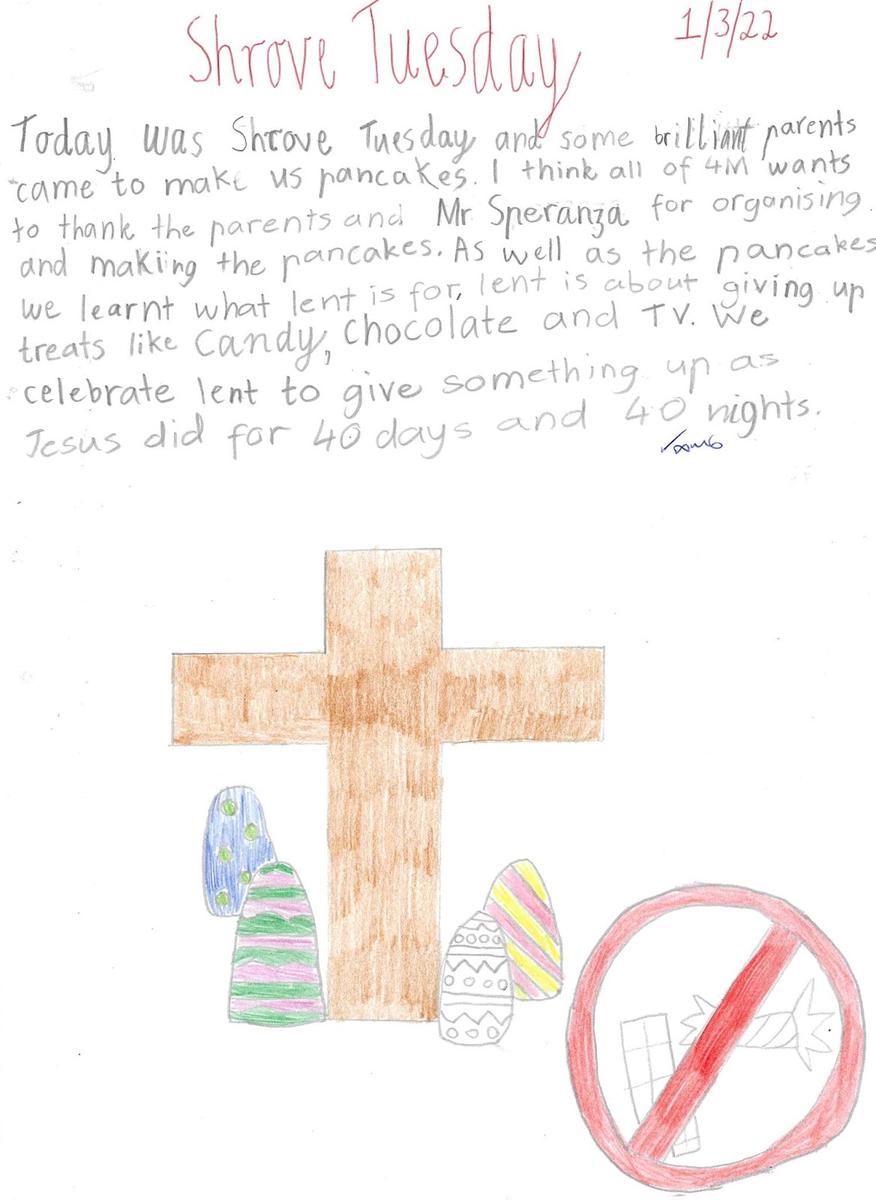 Shrove Tuesday
1/3/22
Today was Shrove Tuesday and some brilliant parents
came to make us pancakes. I think all of 4M wants
to thank the parents and Mr Speranza for organising
and making the pancakes. As well as the pancakes
we learnt what lent is for, lent is about giving up
treats like Candy, Chocolate and TV. We
celebrate lent to give something up as
Jesus did for 40 days and 40 nights.